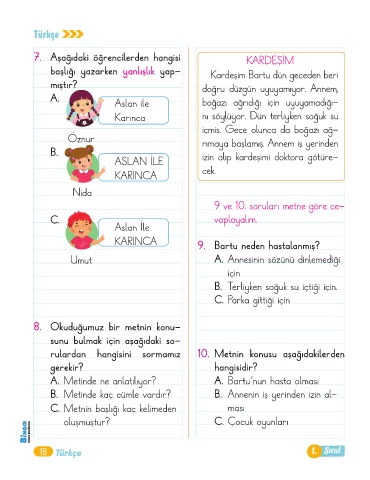 Türkçe
7. Aşağıdaki öğrencilerden hangisi
başlığı yazarken yanlışlık yap-
mıştır?
A.
Aslan ile
Karınca
Öznur
B.
ASLAN İLE
KARINCA
Nida
C.
Aslan İle
KARINCA
Umut
8. Okuduğumuz bir metnin konu-
sunu bulmak için aşağıdaki so-
rulardan hangisini sormamız
gerekir?
A. Metinde ne anlatılıyor?
B. Metinde kaç cümle vardır?
C. Metnin başlığı kaç kelimeden
oluşmuştur?
KARDEŞİM
Kardeşim Bartu dün geceden beri
doğru düzgün uyuyamıyor. Annem,
boğazı ağrıdığı için uyuyamadığı-
nı söylüyor. Dün terliyken soğuk su
içmiş. Gece olunca da boğazı ağ-
rımaya başlamış. Annem iş yerinden
izin alıp kardeşimi doktora götüre-
cek.
9 ve 10. soruları metne göre ce-
vaplayalım.
9. Bartu neden hastalanmış?
A. Annesinin sözünü dinlemediği
için
B. Terliyken soğuk su içtiği için.
C. Parka gittiği için
10. Metnin konusu aşağıdakilerden
hangisidir?
A. Bartu'nun hasta olması
B. Annenin iş yerinden izin al-
ması
C. Çocuk oyunları
BİNGO!
18 Türkçe
1. Sınıf